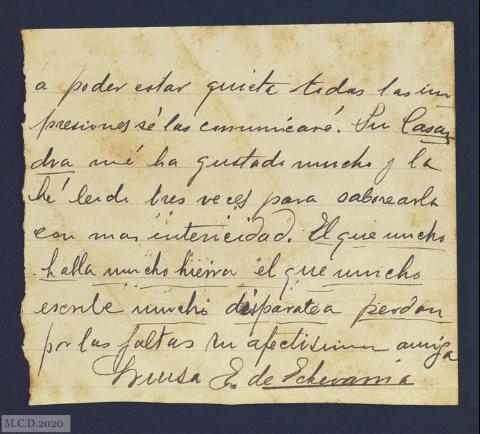 a poder estar quieta todas las im
presiones sé las comunicaré. Su Casan
dra mé ha gustado mucho y la
hé leido tres veces para saborearla
con mas intericidad. El que mucho
habla mucho hierra el que mucho
escribe mucho disparatea perdon
por las faltas su afectisima amiga
Luisa E. de Echevarria
M.C.D.2020